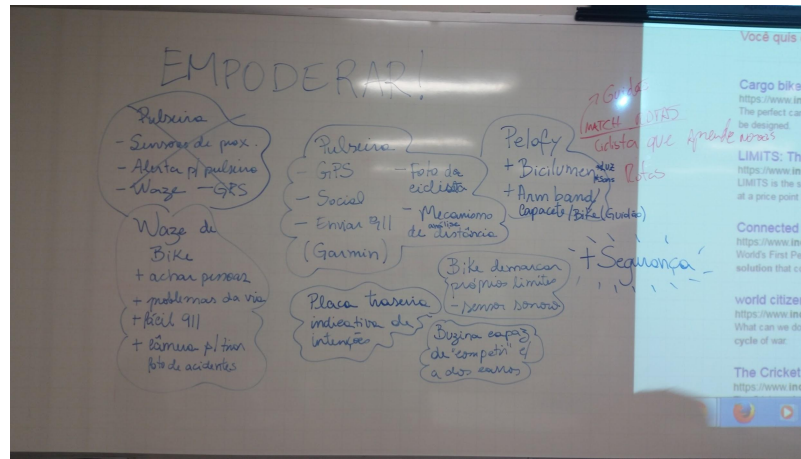 EMPODERAR!
Pulseira
- Sensores de prox.
- Alerta p/ pulseira
- Waze - GPS
Waze de
Bike
+ achar pessoas
+ problemas da via
+ fácil 911
+ câmera p/ tirar
foto de acidentes
Pulseira
- GPS
- Social
- Enviar 911
(Garmin)
- Foto da
ciclista
- Mecanismo
análise
de distância
Placa traseira
indicativa de
intenções
Pelofy
+ Bicilumen
+ Arm band/
capacete/Bike (Guidão)
Bike demarcar
próprios limites
- sensor sonoro
Buzina capaz
de "competir" c/
a dos carros
MATCH
Ciclista que Aprende novas
Rotas
+ Segurança
Você quis
Cargo bike
https://www.in
The perfect car
be designed.
LIMITS: Th
https://www.in
LIMITS is the s
at a price point
Connected
https://www.in
World's First Pe
solution that co
world citizen
https://www.in
What can we do
cycle of war
The Cricket
https://www.in